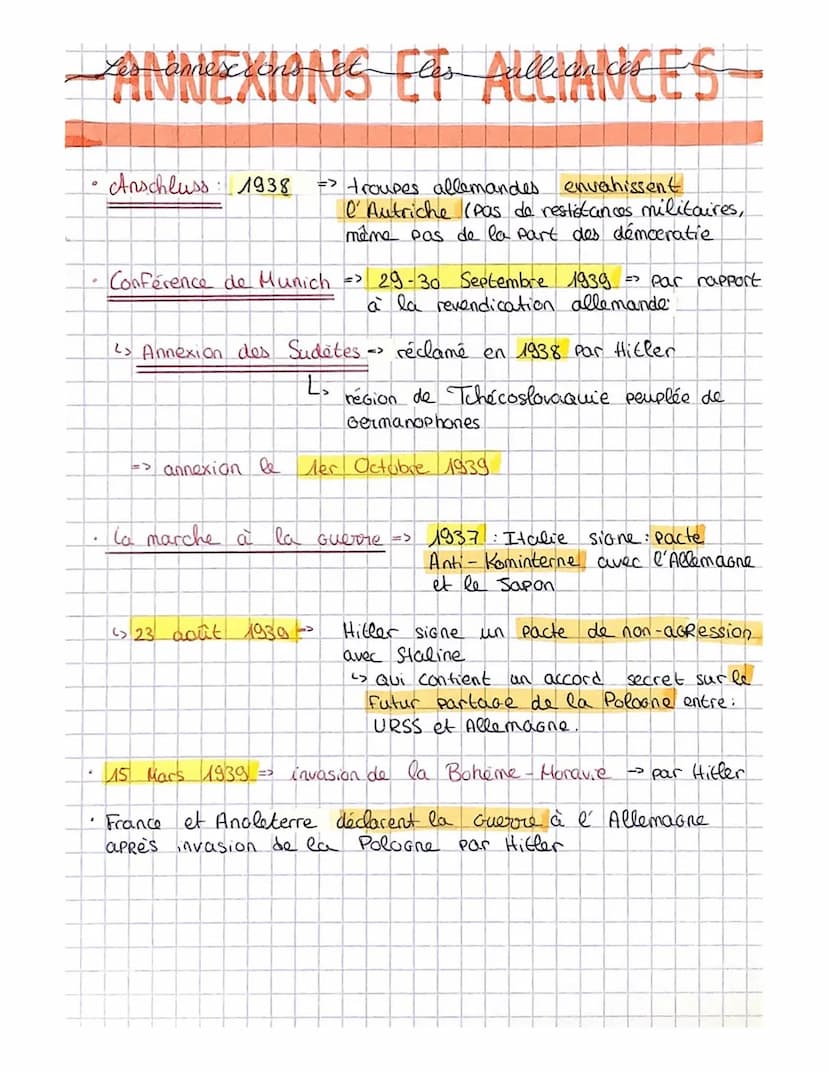 ANNEXIONS ET ALLIANCES
Les annexions et les alliances
· Anschluss : 1938 => troupes allemandes envahissent
l'Autriche (pas de restistances militaires,
même pas de la part des démocratie
· Conférence de Munich => 29-30 Septembre 1939 => par rapport
à la revendication allemande:
↳ Annexion des Sudètes => réclamé en 1938 par Hitler
↳ région de Tchécoslovaquie peuplée de
Germanophones
=> annexion le 1er Octobre 1939
· La marche à la guerre => 1937 : Italie signe : pacte
Anti-Kominterne avec l'Allemagne
et le Japon
↳ 23 août 1939 => Hitler signe un pacte de non-agression
avec Staline
↳ qui contient un accord secret sur le
Futur partage de la Pologne entre :
URSS et Allemagne.
· 15 Mars 1939 => invasion de la Bohème-Moravie → par Hitler
· France et Angleterre déclarent la guerre à l'Allemagne
après invasion de la Pologne par Hitler